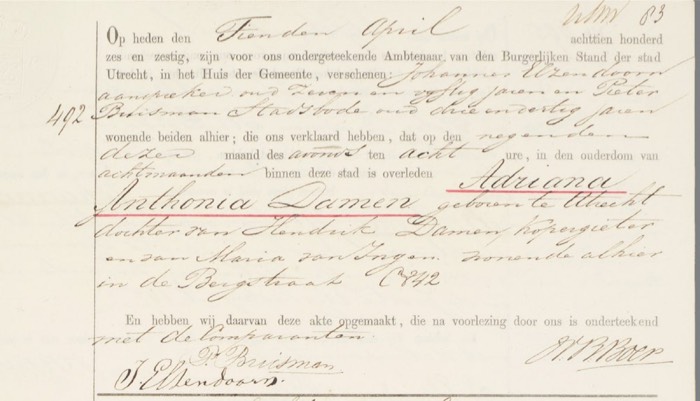 83
Op heden den Tienden April achttien honderd
zes en zestig, zijn voor ons ondergeteekende Ambtenaar van den Burgerlijken Stand der stad
Utrecht, in het Huis der Gemeente, verschenen: Johannes Elzendoorn
aanspreker oud zeven en vyftig jaren en Pieter
492 Buisman Stadsbode oud drie en dertig jaren
wonende beiden alhier; die ons verklaard hebben, dat op den negenden
dezer maand des avonds ten acht ure, in den ouderdom van
acht maanden binnen deze stad is overleden Adriana
Anthonia Damen geboren te Utrecht
dochter van Hendrik Damen, Kopergieter
en van Maria van Ingen wonende alhier
in de Bergstraat 842
En hebben wij daarvan deze akte opgemaakt, die na voorlezing door ons is onderteekend
met de Comparanten.
P. Buisman
J. Elsendoorn.